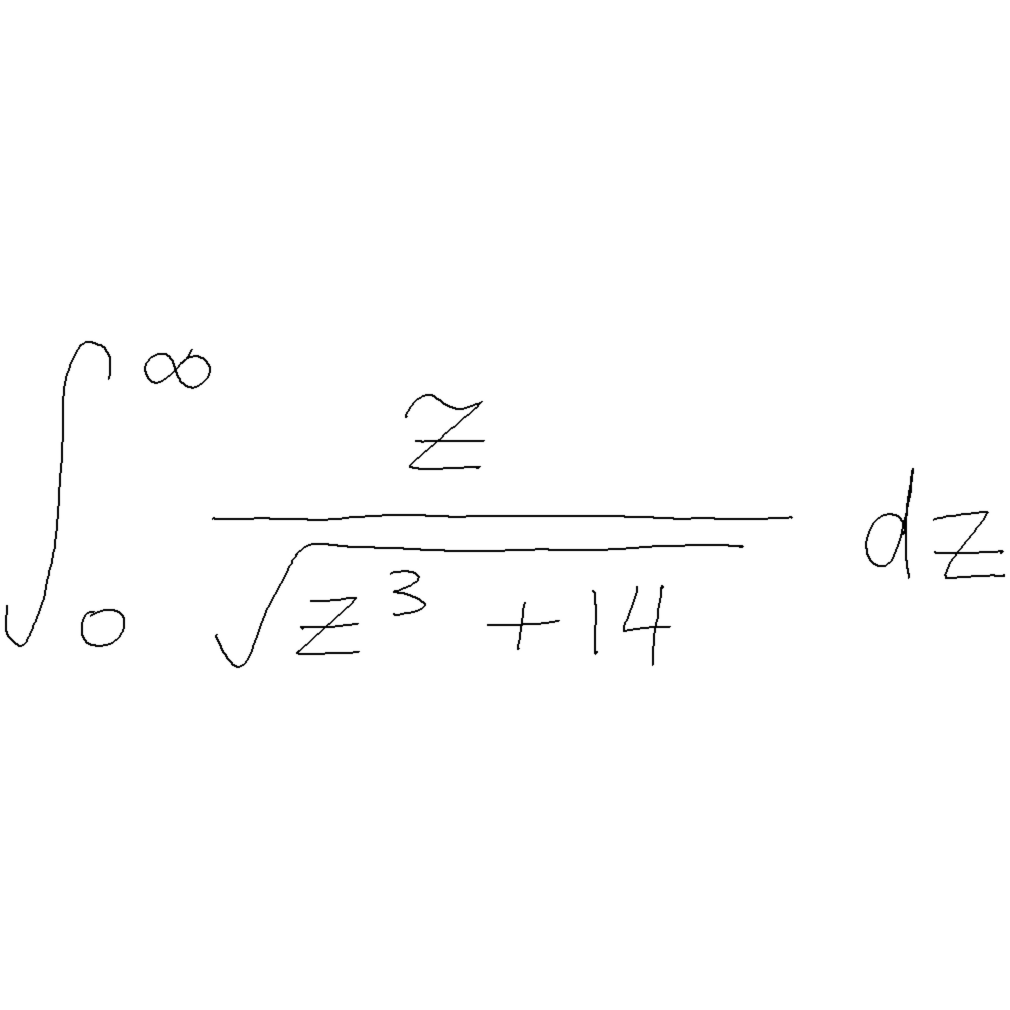 \int_{0}^{\infty} \frac{z}{\sqrt{z^{3}+14}} dz